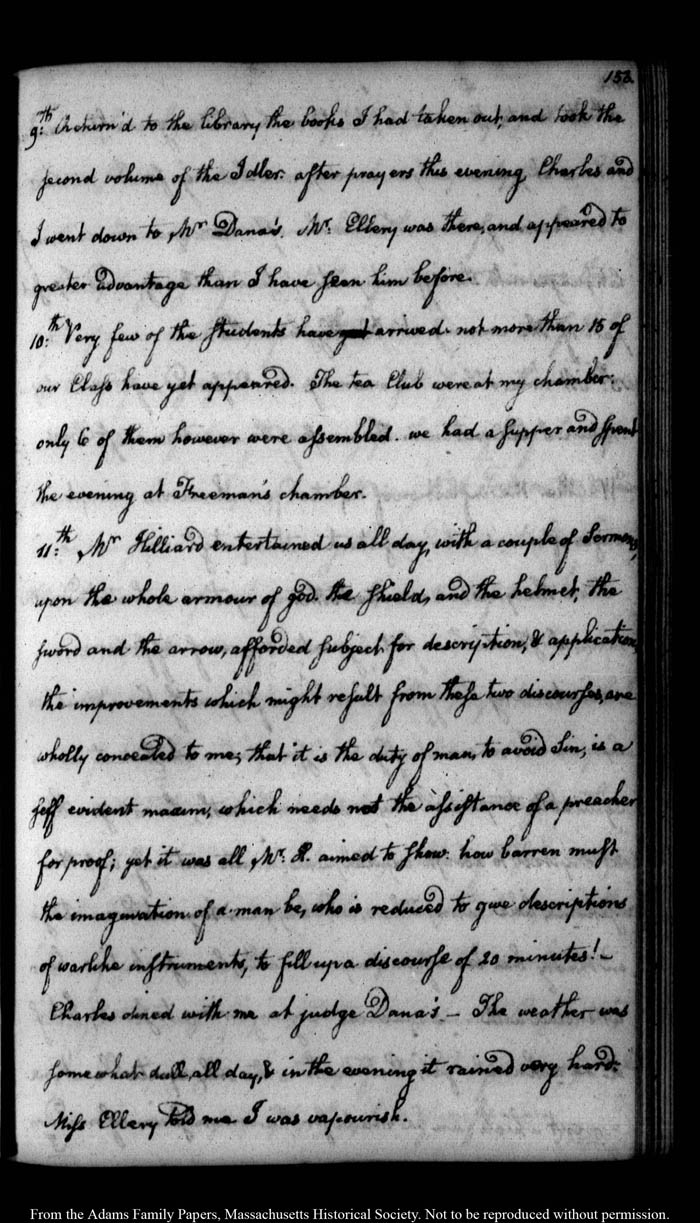 153.
9:th Return'd to the library the books I had taken out, and took the
second volume of the Idler. after prayers this evening, Charles and
I went down to Mr Dana's. Mr: Ellery was there, and appeared to
greater advantage than I have seen him before.
10:th Very few of the students have yet arrived. not more than 15 of
our Class have yet appeared. The tea Club were at my chamber:
only 6 of them however were assembled. we had a supper and spent
the evening at Freeman's chamber.
11:th Mr Hilliard entertained us all day, with a couple of Sermons,
upon the whole armour of god. the shield, and the helmet, the
sword and the arrow, afforded subject for description, & application,
the improvements which might result from these two discourses, are
wholly concealed to me; that it is the duty of man, to avoid Sin, is a
self evident maxim, which needs not the assistance of a preacher
for proof; yet it was all Mr: H. aimed to show: how barren must
the imagination of a man be, who is reduced to give descriptions
of warlike instruments, to fill up a discourse of 20 minutes! —
Charles dined with me at judge Dana's — The weather was
somewhat dull, all day, & in the evening it rained very hard:
Miss Ellery told me I was vapourish.
From the Adams Family Papers, Massachusetts Historical Society. Not to be reproduced without permission.